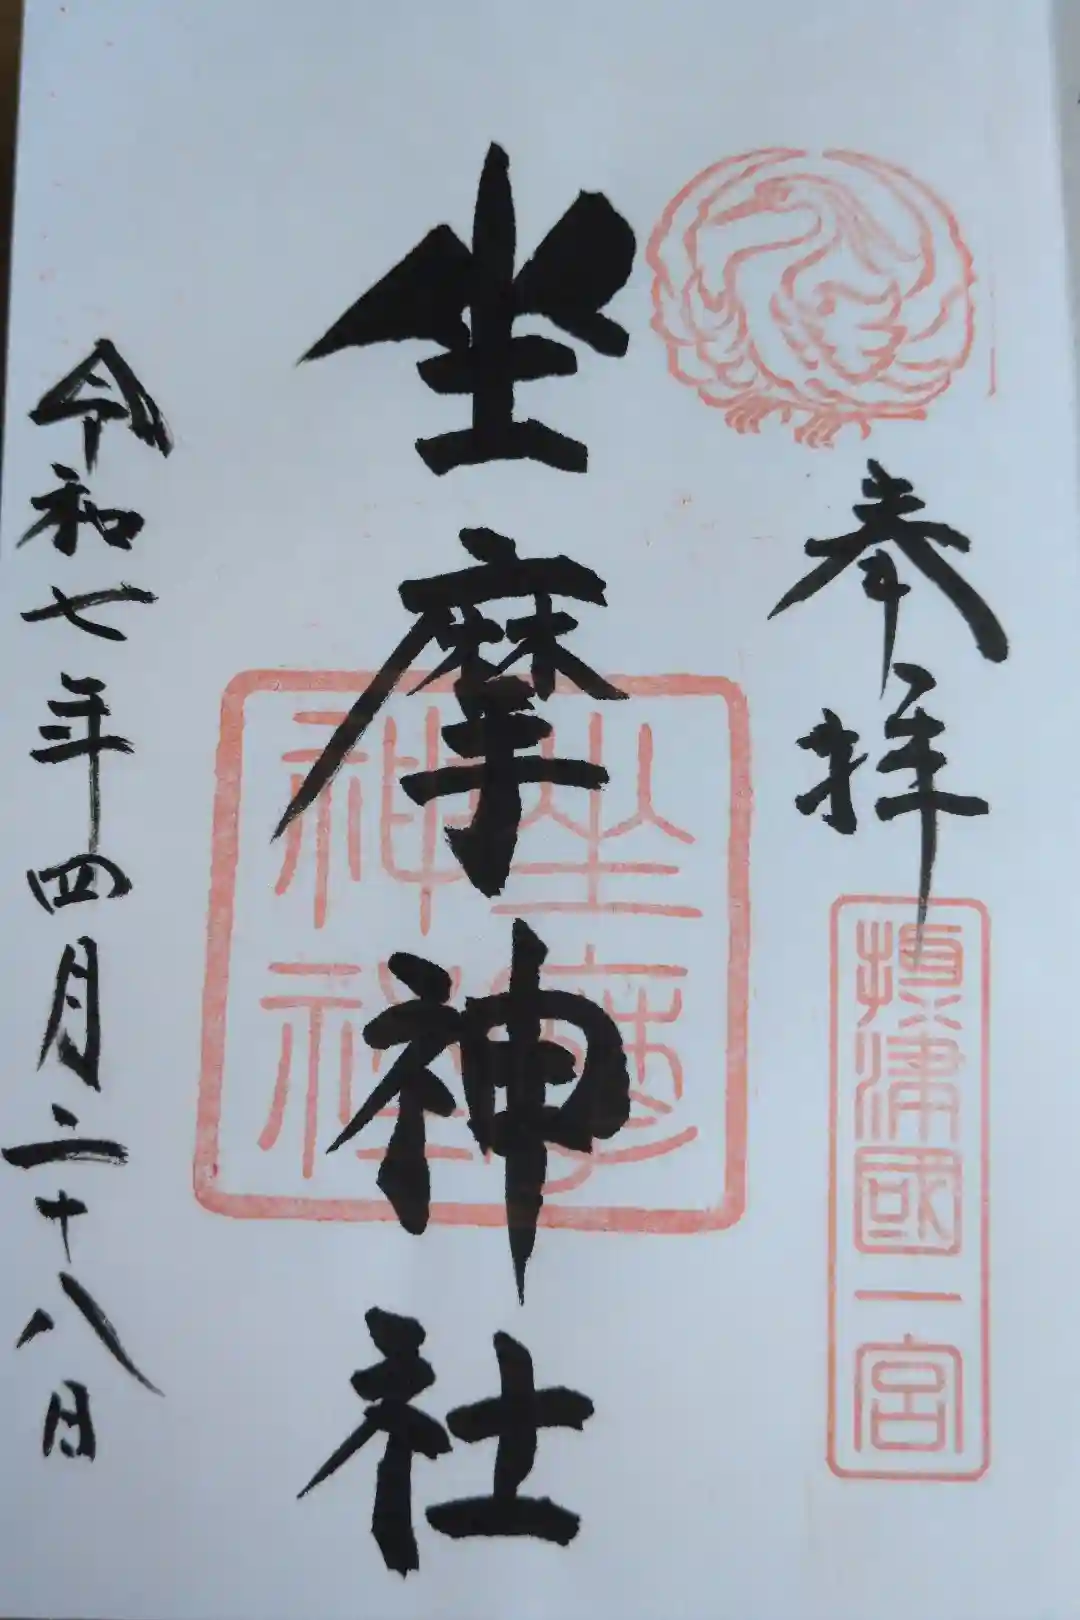 奉拝
摂津國一宮
坐摩神社
坐摩神社
令和七年四月二十八日